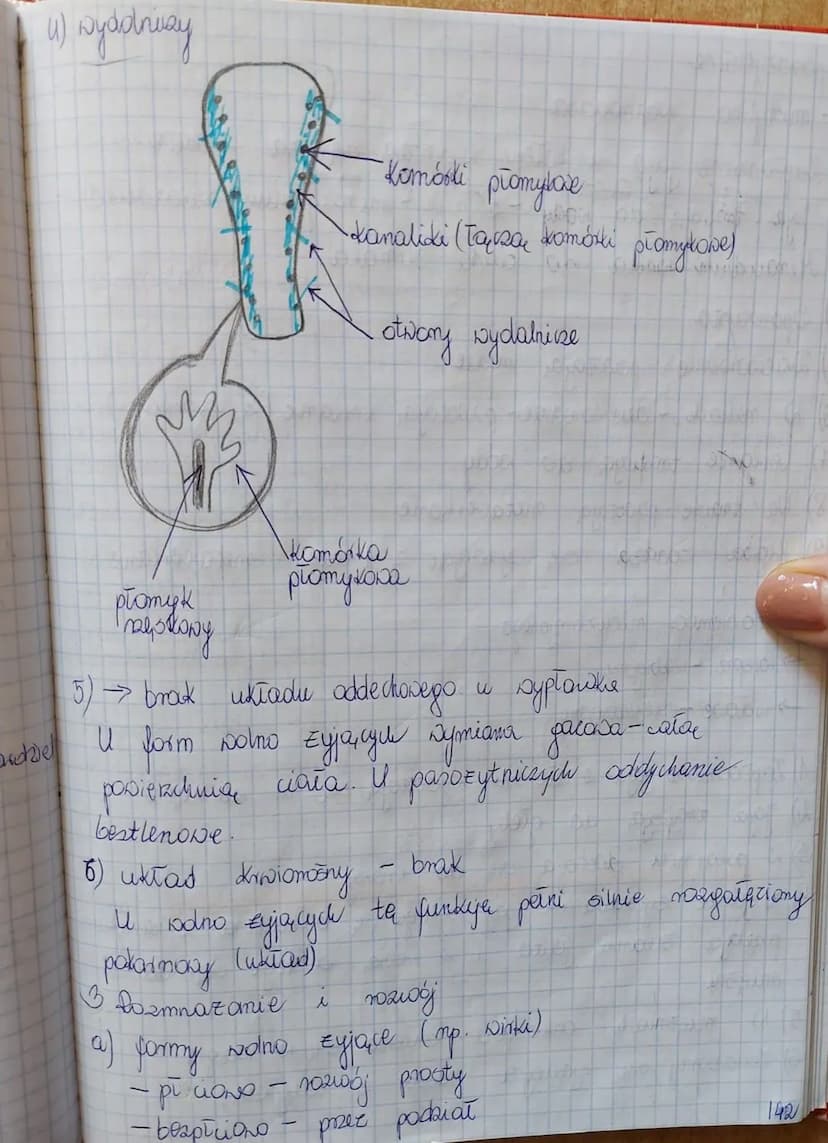 4) wydalniczy
komórki płomykowe
kanaliki (łączą komórki płomykowe)
otwory wydalnicze
komórka
płomykowa
płomyk
rzęskowy
5) → brak układu oddechowego u wypławka
U form wolno żyjących wymiana gazowa - całą
powierzchnią ciała. U pasożytniczych oddychanie
beztlenowe.
6) układ krwionośny - brak
U wolno żyjących tę funkcję pełni silnie rozgałęziony
pokarmowy (układ)
3 Rozmnażanie i rozwój
a) formy wolno żyjące (np. wirki)
- płciowo - rozwój prosty
- bezpłciowo - przez podział
142